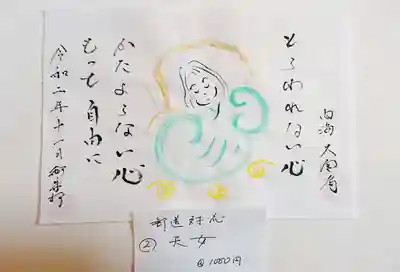 内海 大圓角
とらわれない心
かたよらない心
もっと自由に
令和二年十一月
郵送対応
② 天女
@1000円